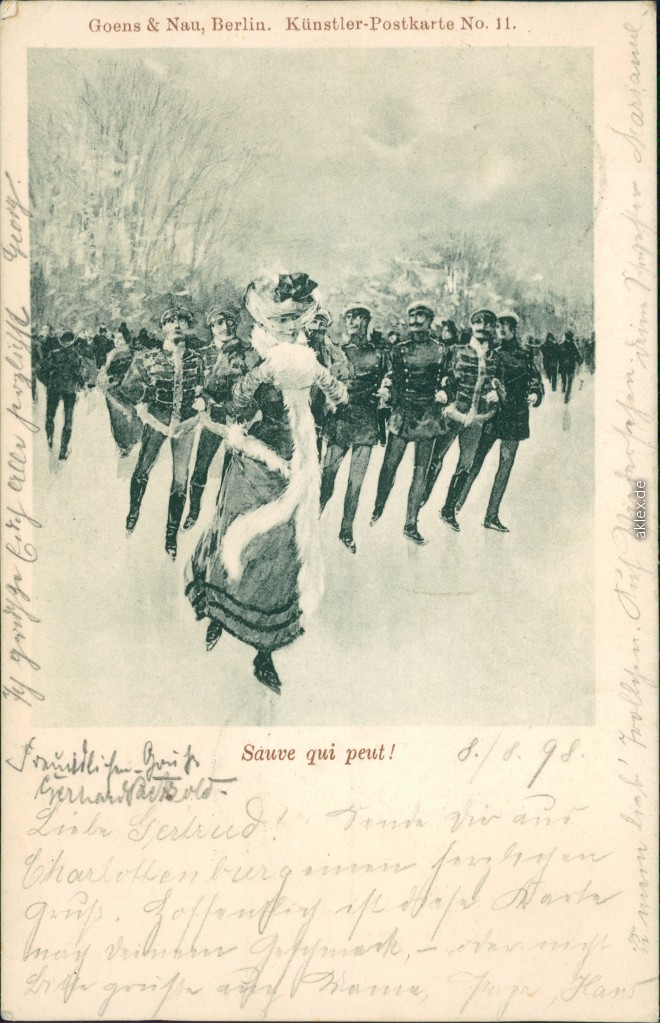 Goens & Nau, Berlin. Künstler-Postkarte No. 11.
Sauve qui peut!
8./8. 98.
Freundlichen Gruß
Gerhard
Liebe Gertrud! Sende Dir aus
Charlottenburg einen herzlichen
Gruß. Hoffentlich ist diese Karte
nach deinem Geschmack, – oder nicht
Bitte grüße auch Mama, Papa, Hans
Auf Wiedersehen deine
Ich grüße Euch Alle herzlichst Georg.
aklex.de